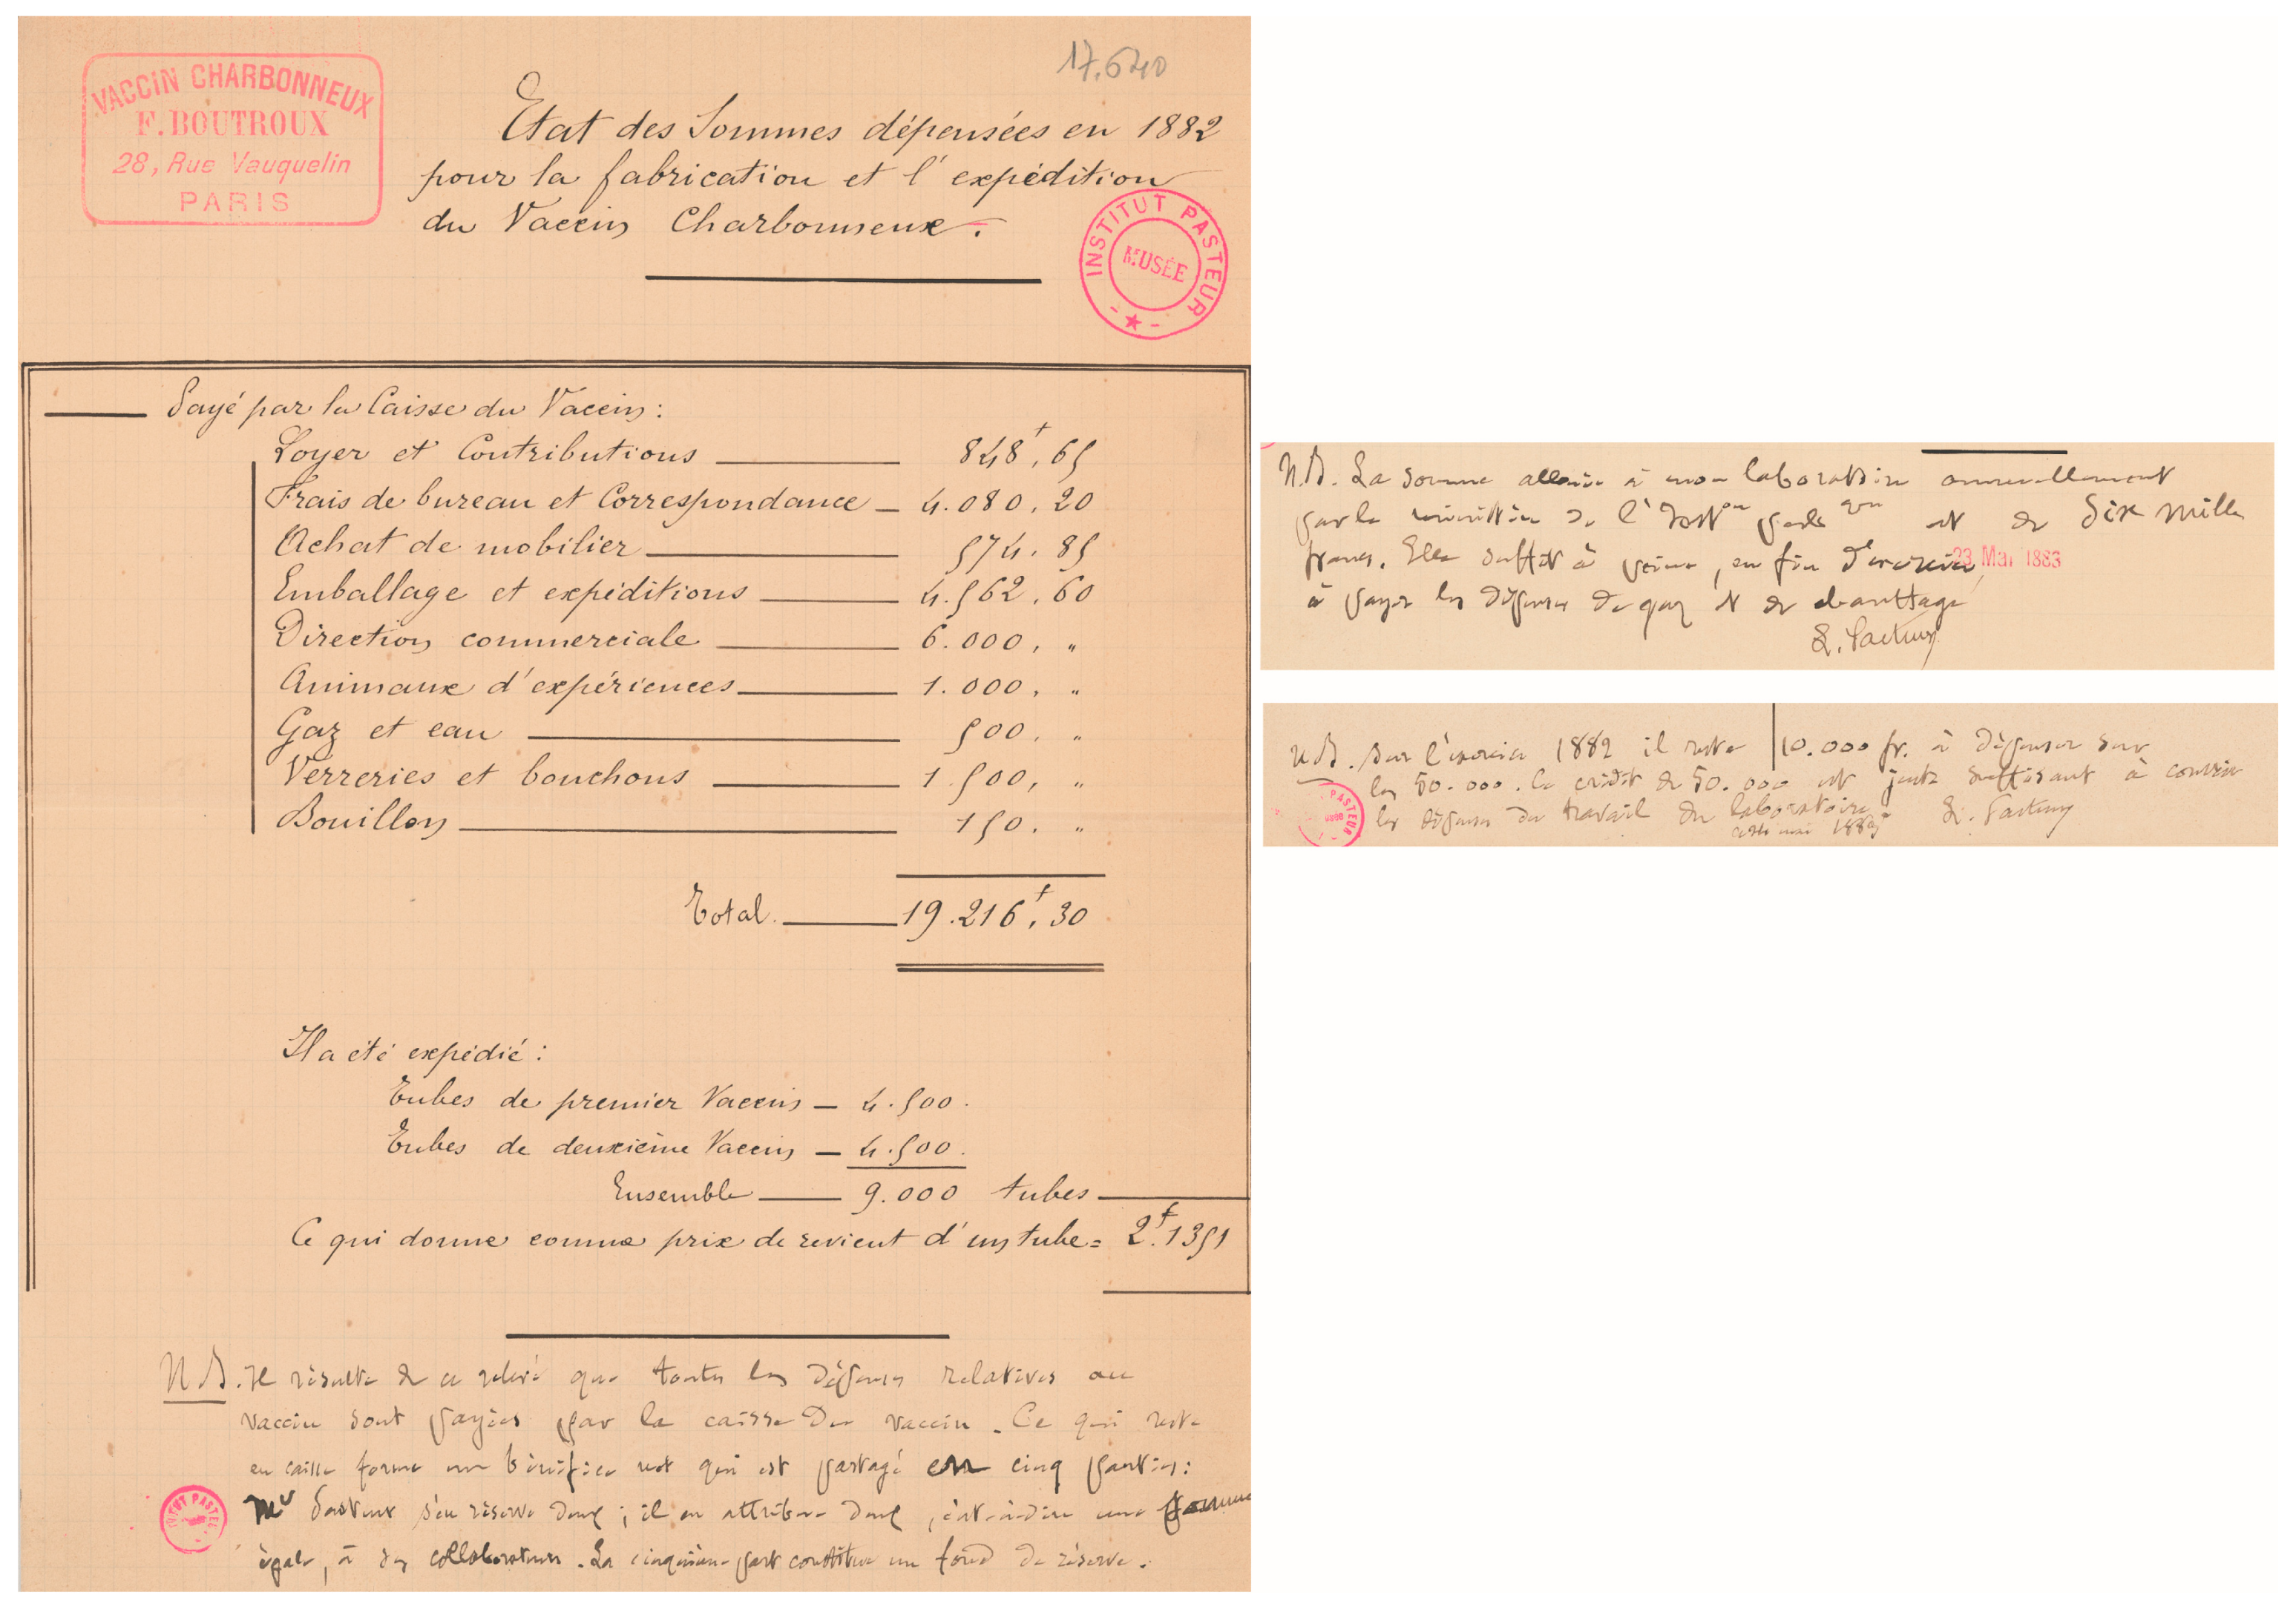 17.640
VACCIN CHARBONNEUX
F. BOUTROUX
28, Rue Vauquelin
PARIS
Etat des Sommes dépensées en 1882
pour la fabrication et l'expédition
du Vaccin Charbonneux.
INSTITUT PASTEUR
MUSÉE
Payé par la Caisse du Vaccin:
Loyer et Contributions 848f,65
Frais de bureau et Correspondance 4.080,20
Achat de mobilier 574.85
Emballage et expéditions 4.562.60
Direction commerciale 6.000, "
Animaux d'expériences 1.000, "
Gaz et eau 500. "
Verreries et bouchons 1.500, "
Bouillon 150. "
Total 19.216f,30
Il a été expédié:
Tubes de premier Vaccin — 4.500.
Tubes de deuxième Vaccin — 4.500.
Ensemble 9.000 tubes
Ce qui donne comme prix de revient d'un tube = 2f.1351
N B. Il résulte de ce relevé que toutes les dépenses relatives au
vaccin sont payées par la caisse du vaccin. Ce qui reste
en caisse forme un bénéfice net qui est partagé en cinq parties:
Mr Pasteur s'en réserve deux; il en attribue deux, c'est-à-dire une somme
égale, à ses collaborateurs. La cinquième part constitue un fond de réserve.
N.B. La somme allouée à mon laboratoire annuellement
par le ministère de l'Inston publique est de dix mille
francs. Elle suffit à peine, en fin d'exercice,
23 Mai 1883
à payer les dépenses de gaz et de chauffage
L. Pasteur
N B. Sur l'exercice 1882 il reste 10.000 fr. à dépenser sur
les 50.000. Le crédit de 50.000 est juste suffisant à couvrir
les dépenses du travail du laboratoire
L. Pasteur
PASTEUR